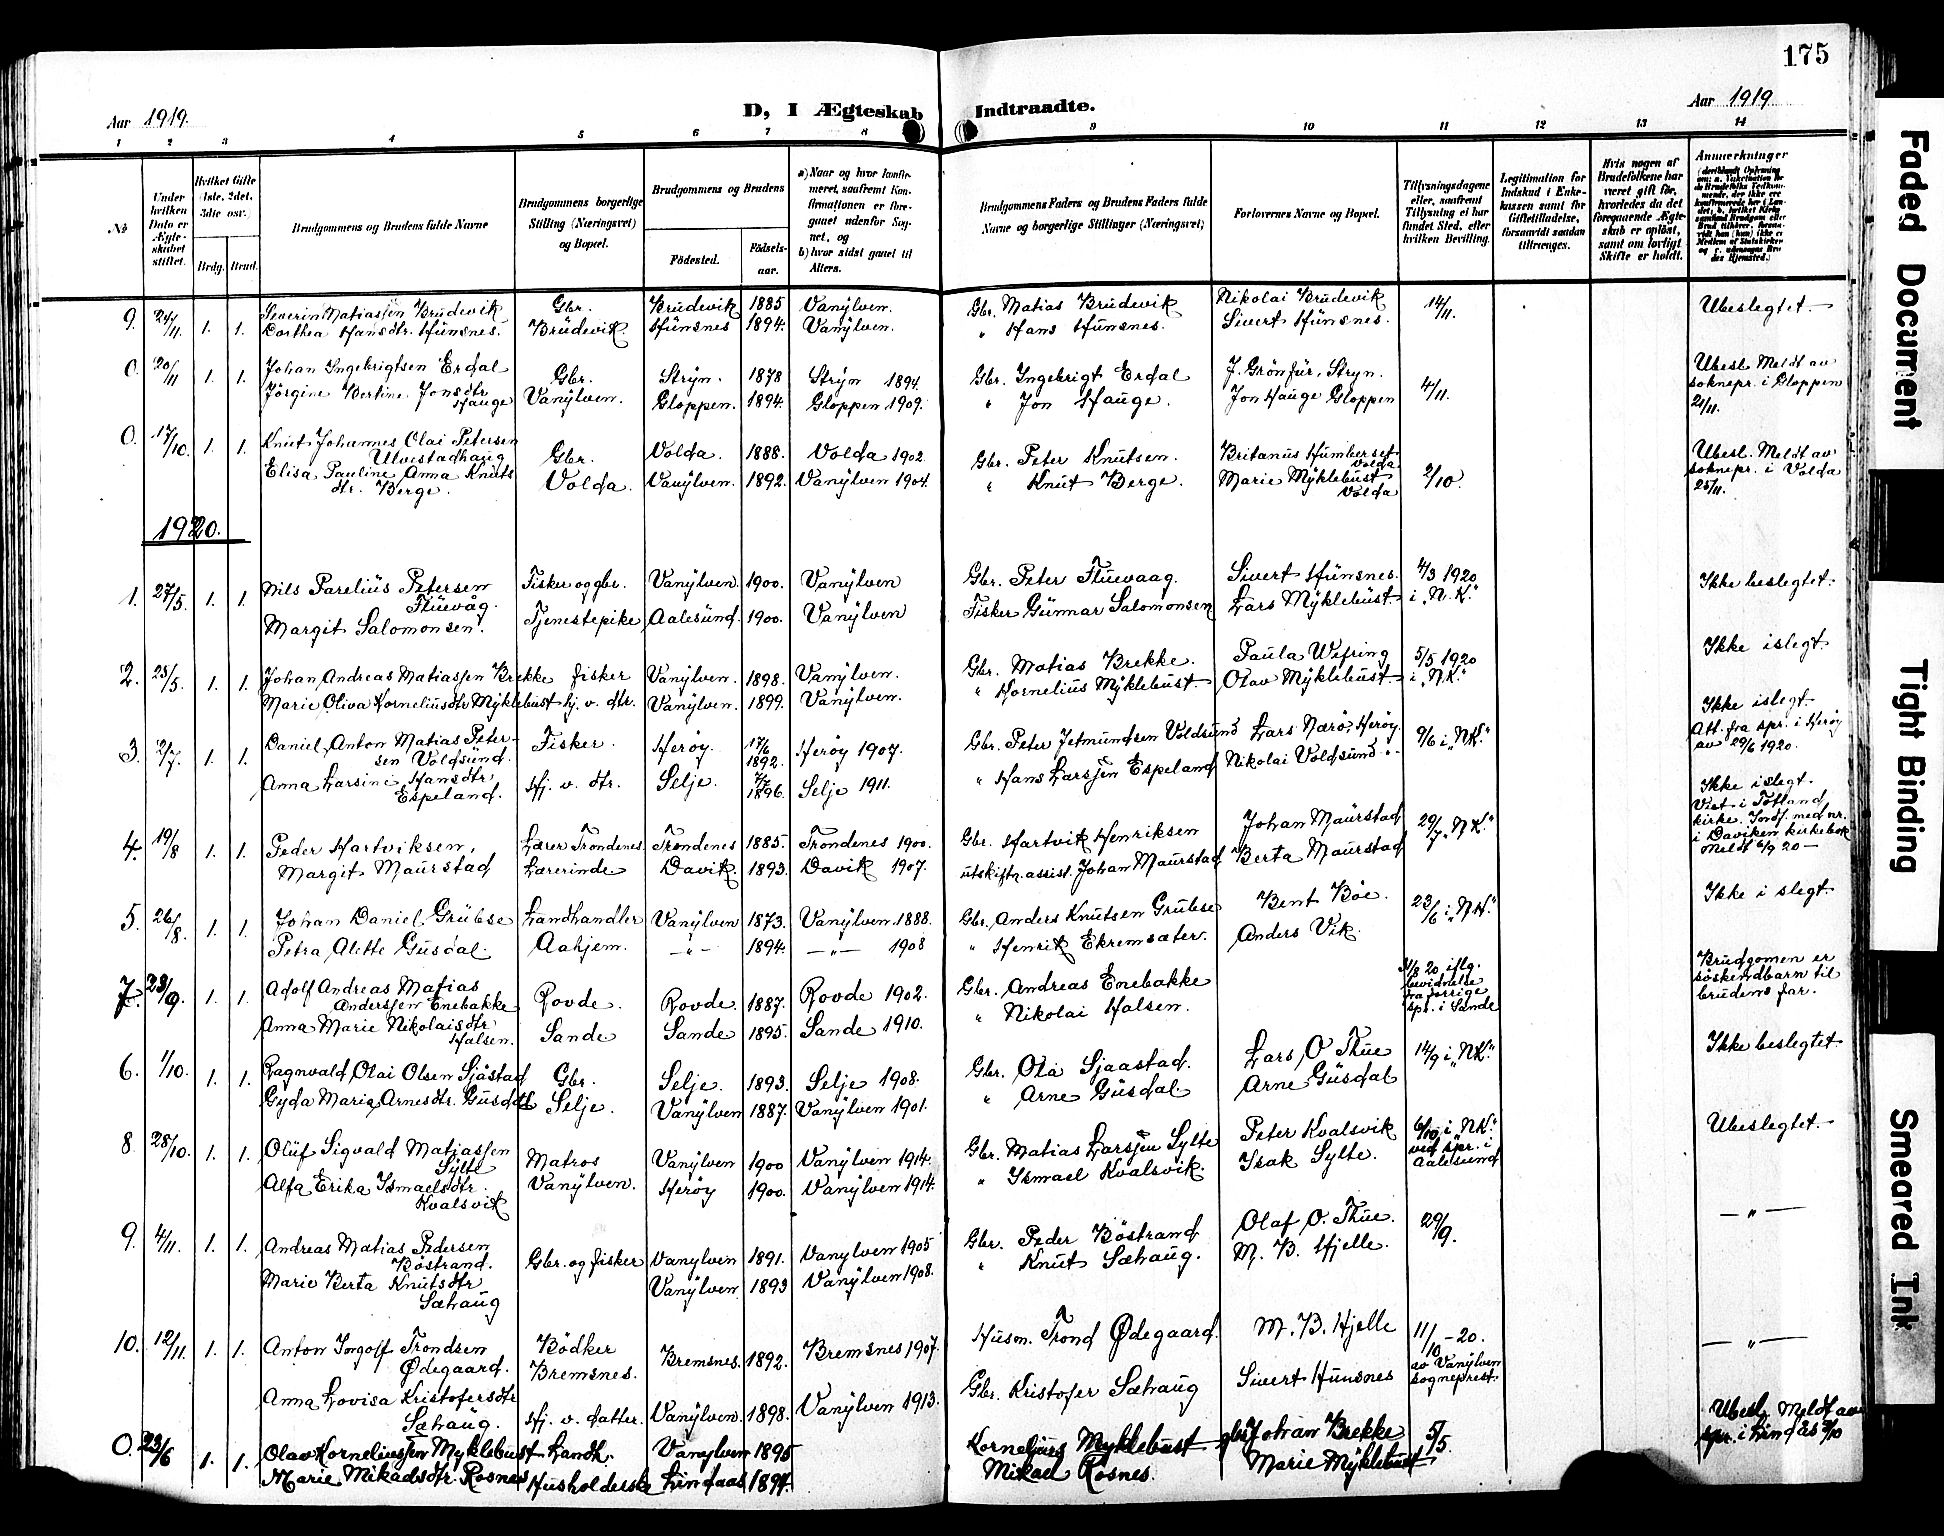 175
Aar 1919.
D, I Ægteskab Indtraadte.
Aar 1919
1 2 3 4 5 6 7 8 9 10 11 12 13 14
No
Under hvilken Dato er Ægteskabet stiftet.
Hvilket Gifte (1ste, 2det, 3die osv.)
Brdg. Brud.
Brudgommens og Brudens fulde Navne
Brudgommens borgerlige Stilling (Næringsvei) og Bopæl.
Brudgommens og Brudens
Fødested. Fødsels-aar.
a) Naar og hvor konfirmeret, saafremt Konfirmationen er foregaaet udenfor Sognet, og
b) hvor sidst gaaet til Alters.
Brudgommens Faders og Brudens Faders fulde Navne og borgerlige Stillinger (Næringsvei)
Forlovernes Navne og Bopæl.
Tillysningsdagene eller, saafremt Tillysning ei har fundet Sted, efter hvilken Bevilling.
Legitimation for Indskud i Enkekassen samt for Giftetilladelse, forsaavidt saadan tiltrænges.
Hvis nogen af Brudefolkene har været gift før, hvorledes da det foregaaende Ægteskab er opløst, samt om lovligt Skifte er holdt.
Anmerkninger
9. 24/11. 1. 1. Severin Matiassen Brudevik Gbr. Brudevik 1885 Vanylven. Gbr. Matias Brudevik Nikolai Brudevik 14/11. Ubeslegtet.
Dorthea Hansdtr. Hunsnes. Brudevik Hunsnes 1894. Vanylven. " Hans Hunsnes. Sivert Hunsnes.
0. 20/11 1. 1. Johan Ingebrigtsen Erdal Gbr. Stryn. 1878 Stryn 1894. Gbr. Ingebrigt Erdal J. Grönfur, Stryn. 4/11. Ubesl. Meldt av
Jörgine Bertine Jonsdtr. Hauge Vanylven. Gloppen. 1894. Gloppen 1909. " Jon Hauge. Jon Hauge Gloppen soknepr. i Gloppen
21/11.
0. 17/10. 1. 1. Knut Johannes Olai Petersen
Ulvestadhaug Gbr. Volda. 1888. Volda 1902. Gbr. Peter Knutsen. Britanus Humberset Volda Ubesl. Meldt av
Elisa Pauline Anna Knuts
dtr. Berge. Volda. Vanylven. 1892. Vanylven 1904. " Knut Berge. Marie Myklebust Volda 2/10. soknepr. i Volda
25/11.
1920.
1. 27/5. 1. 1. Nils Parelius Petersen
Fluevåg. Fisker og gbr. Vanylven. 1900. Vanylven Gbr. Peter Fluevaag. Sivert Hunsnes. 4/3 1920 Ikke beslegtet.
Margit Salomonsen. Tjenestepike Aalesund. 1900. Vanylven Fisker Gunnar Salomonsen Lars Myklebust i "N.K."
2. 25/5. 1. 1. Johan Andreas Matiassen Brekke Fisker Vanylven. 1898. Vanylven. Gbr. Matias Brekke. Paula Wefring 5/5 1920 Ikke islegt
Marie Oliva Korneliusdtr Myklebust hj. v. dtr. Vanylven. 1899. Vanylven. " Kornelius Myklebust. Olav Myklebust. i "NK."
3. 2/7. 1. 1. Daniel Anton Matias Peter-
sen Voldsund. Fisker. Herøy. 17/6 1892. Herøy 1907. Gbr. Peter Jetmundsen Voldsund Lars Nærö, Herøy. 9/6 i "NK." Ikke islegt.
Att. fra spr. i Herøy
av 29/6 1920.
Anna Larsine Hansdtr.
Espeland. Hj. v. dtr. Selje. 7/7 1896. Selje 1911. " Hans Larssen Espeland Nikolai Voldsund
4. 19/8 1. 1. Peder Hartviksen, Lærer Trondenes Trondenes 1885. Trondenes 1900. Gbr. Hartvik Henriksen Johan Maurstad 29/7 "NK." Ikke islegt.
Viet i Totland
kirke. Indf. med nr.
i Daviken kirkebok
Meldt 6/9 20 —
Margit Maurstad Lærerinde Davik. 1893. Davik 1907. utskiftn. assist. Johan Maurstad Berta Maurstad
5. 26/8. 1. 1. Johan Daniel Grubse Landhandler Vanylven 1873. Vanylven 1888. Gbr. Anders Knutsen Grubse Bent Böe. 23/6 i "NK." Ikke i slegt.
Petra Alette Gusdal. Aahjem. — " — 1894. — " — 1908 " Henrik Ekremsæter. Anders Vik.
7. 23/9. 1. 1. Adolf Andreas Matias
Anderssen Enebakke Rovde. Rovde. 1887. Rovde 1902. Gbr. Andreas Enebakke 4/8 20 iflg. bevidnelse fra forrige spr. i Sande Brudgomen er
søskendbarn til
brudens far.
Anna Marie Nikolaisdtr
Halsen. Sande Sande 1895. Sande 1910. " Nikolai Halsen.
6. 1/10. 1. 1. Ragnvald Olai Olsen Sjåstad Gbr. Selje. 1893. Selje 1908. Gbr. Ola Sjaastad. Lars O Thue 14/9 i "NK." Ikke beslegtet.
Gyda Maria Arnesdtr. Gusdal Selje. Vanylven 1887. Vanylven 1901. " Arne Gusdal Arne Gusdal
8 28/10. 1. 1. Oluf Sigvald Matiassen
Sylte Matros Vanylven 1900 Vanylven 1914. Gbr. Matias Larssen Sylte Peter Kvalsvik 6/10 i "NK." ved spr. i Aalesund Ubeslegtet.
Alfa Erika Ismaelsdtr.
Kvalsvik Vanylven. Herøy 1900. Vanylven 1914. " Ismael Kvalsvik. Isak Sylte.
9. 4/11. 1. 1. Andreas Matias Pedersen
Böstrand. Gbr. og fisker Vanylven 1891. Vanylven 1905 Gbr. Peder Böstrand Olaf O. Thue. 29/9. — " —
Marie Berta Knutsdtr
Sæhaug Vanylven 1893 Vanylven 1908. " Knut Sæhaug. M. B. Hjelle.
10. 12/11. 1. 1. Anton Ingolf Trondsen
Ødegaard. Bödker Bremsnes. Bremsnes. 1892. Bremsnes 1907. Husm. Trond Ødegaard. M. B. Hjelle 11/10 - 20. av Vanylven sogneprest. — " —
Anna Lovisa Kristofersdtr
Sæhaug. Hj. v. datter. Vanylven. 1898. Vanylven 1913. Gbr. Kristofer Sæhaug Sivert Hunsnes
0. 23/6 1. 1. Olav Korneliussen Myklebust Landh. Vanylven 1895 Kornelius Myklebust gbr Johan Brekke 5/5. Ubesl. Meldt av
Marie Mikaelsdtr. Rosnes Husholderske Lindaas 1894. Mikael Rosnes. Marie Myklebust spr. i Lindås
Faded Document
Tight Binding
Smeared Ink